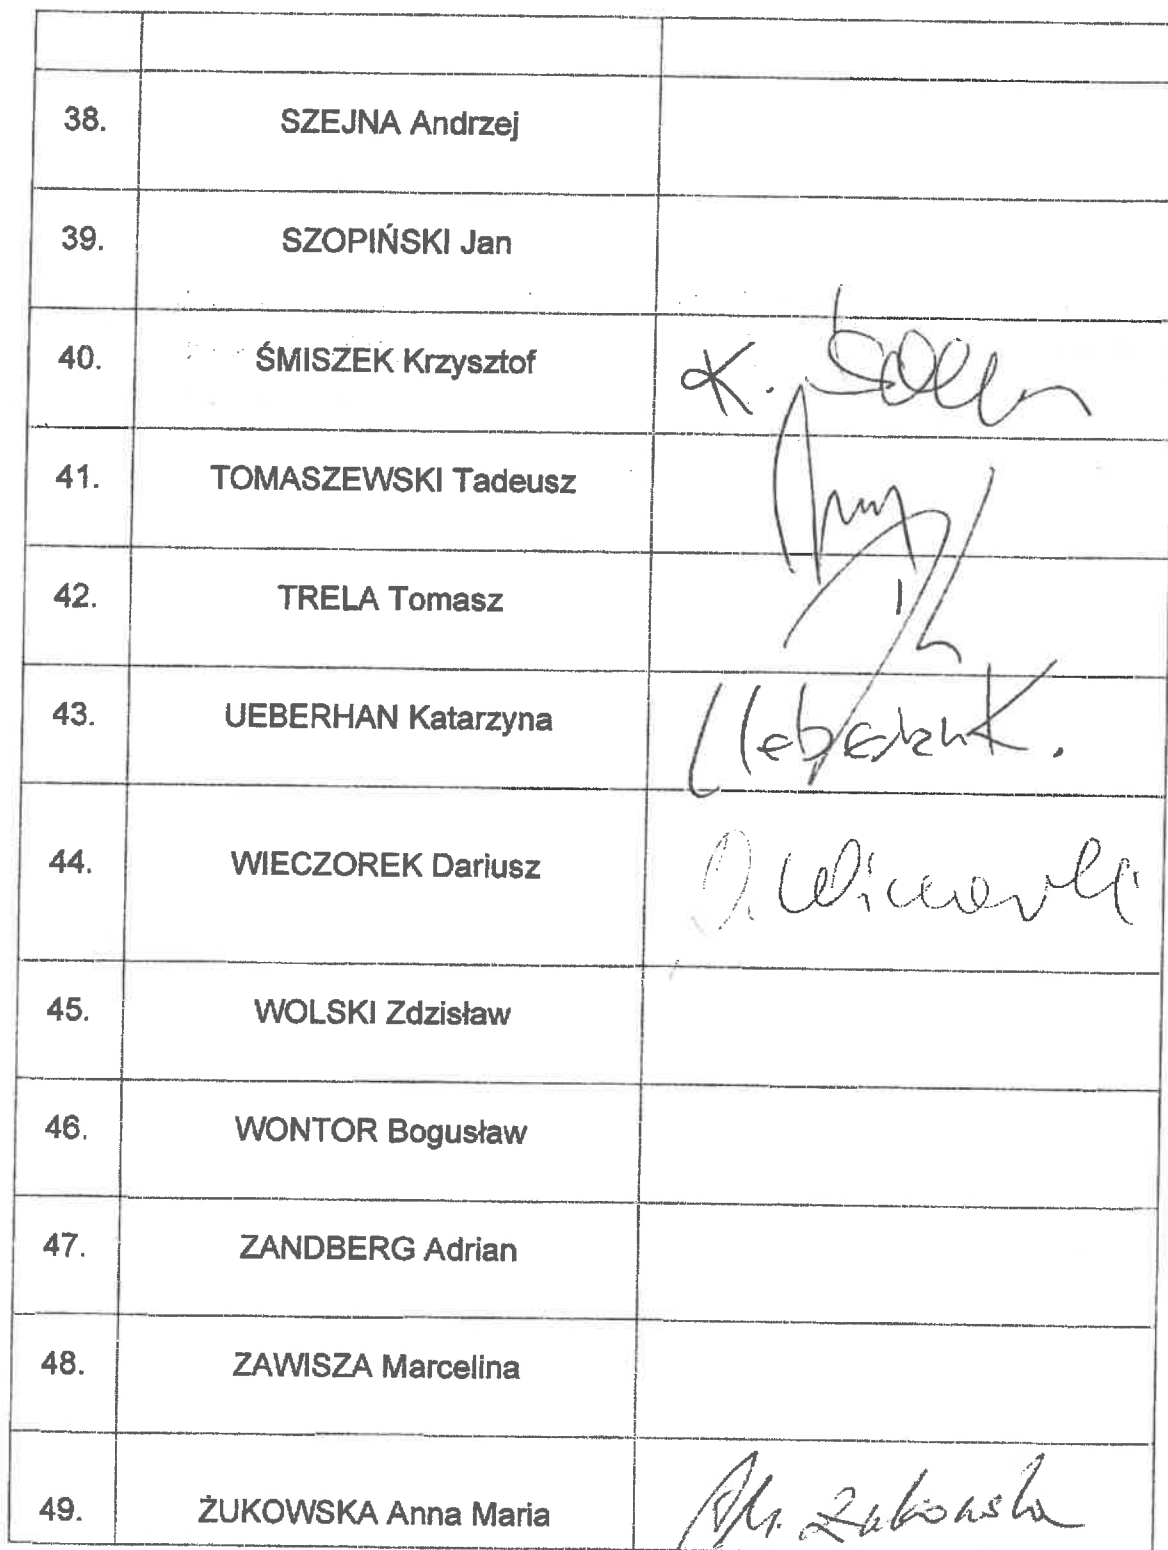 38. SZEJNA Andrzej
39. SZOPIŃSKI Jan
40. ŚMISZEK Krzysztof K.
41. TOMASZEWSKI Tadeusz
42. TRELA Tomasz
43. UEBERHAN Katarzyna Ueberhan K.
44. WIECZOREK Dariusz D. Wieczorek
45. WOLSKI Zdzisław
46. WONTOR Bogusław
47. ZANDBERG Adrian
48. ZAWISZA Marcelina
49. ŻUKOWSKA Anna Maria AM. Żukowska